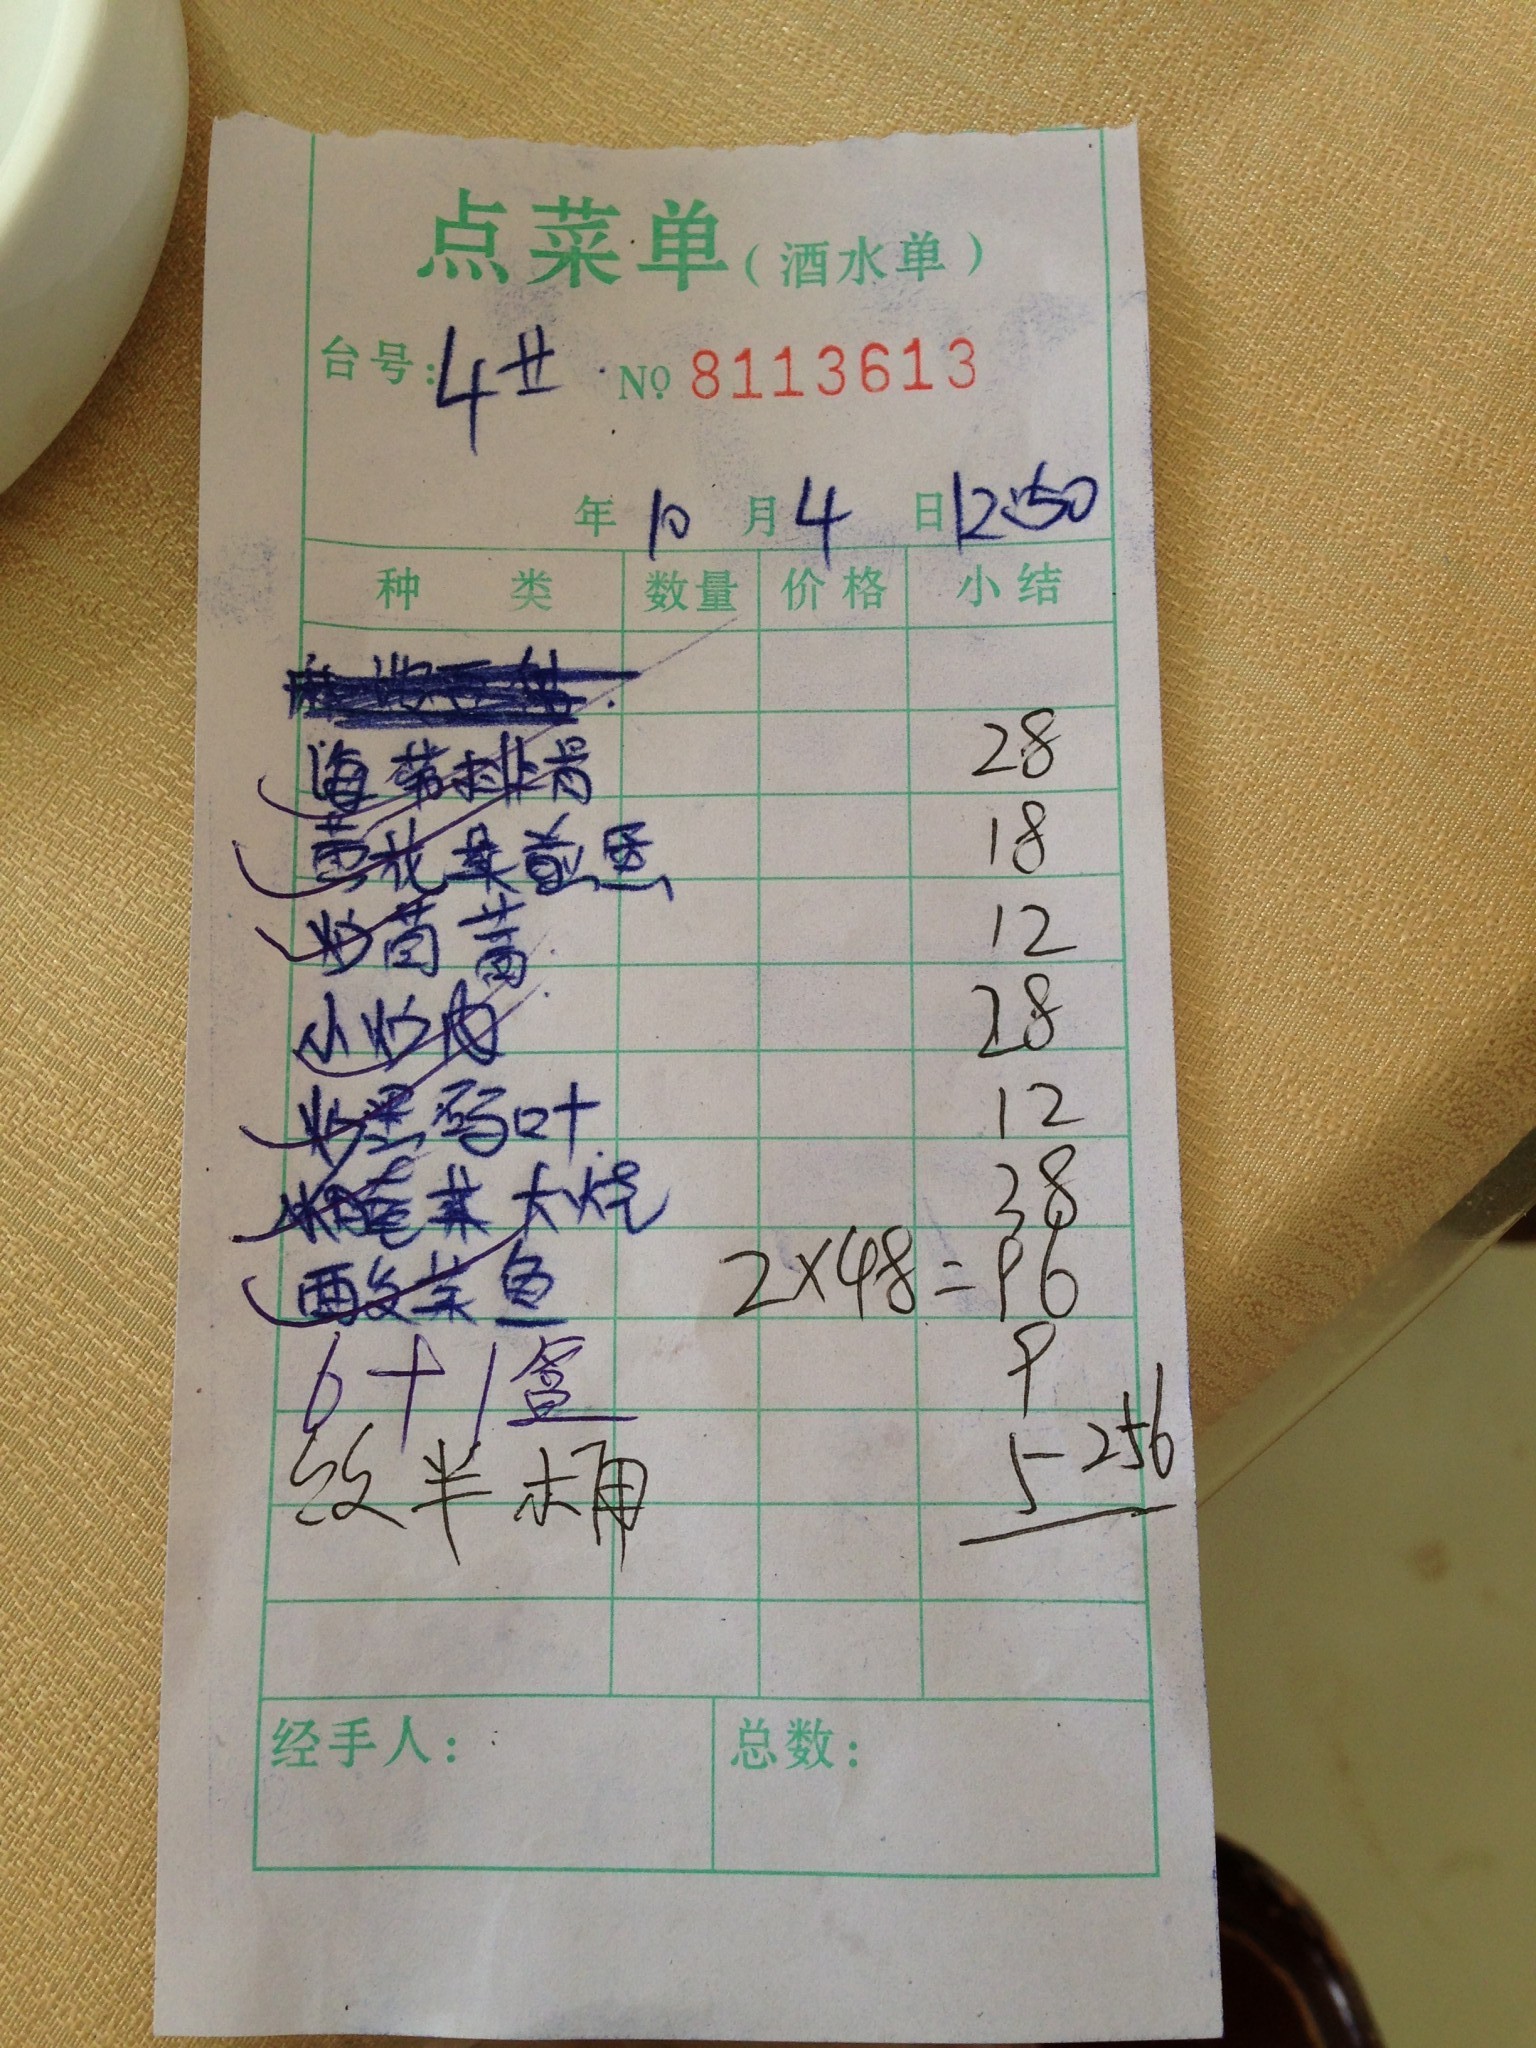 点菜单(酒水单)
台号: 4 № 8113613
年 10 月 4 日 12:50
种 类 数量 价格 小结
海带排骨 28
黄花菜煎蛋 18
炒茼蒿 12
小炒肉 28
炒黑码叶 12
腌菜大烧 38
酸菜鱼 2×48=96
6+1盒 9
饮半桶 5 256
经手人: 总数: